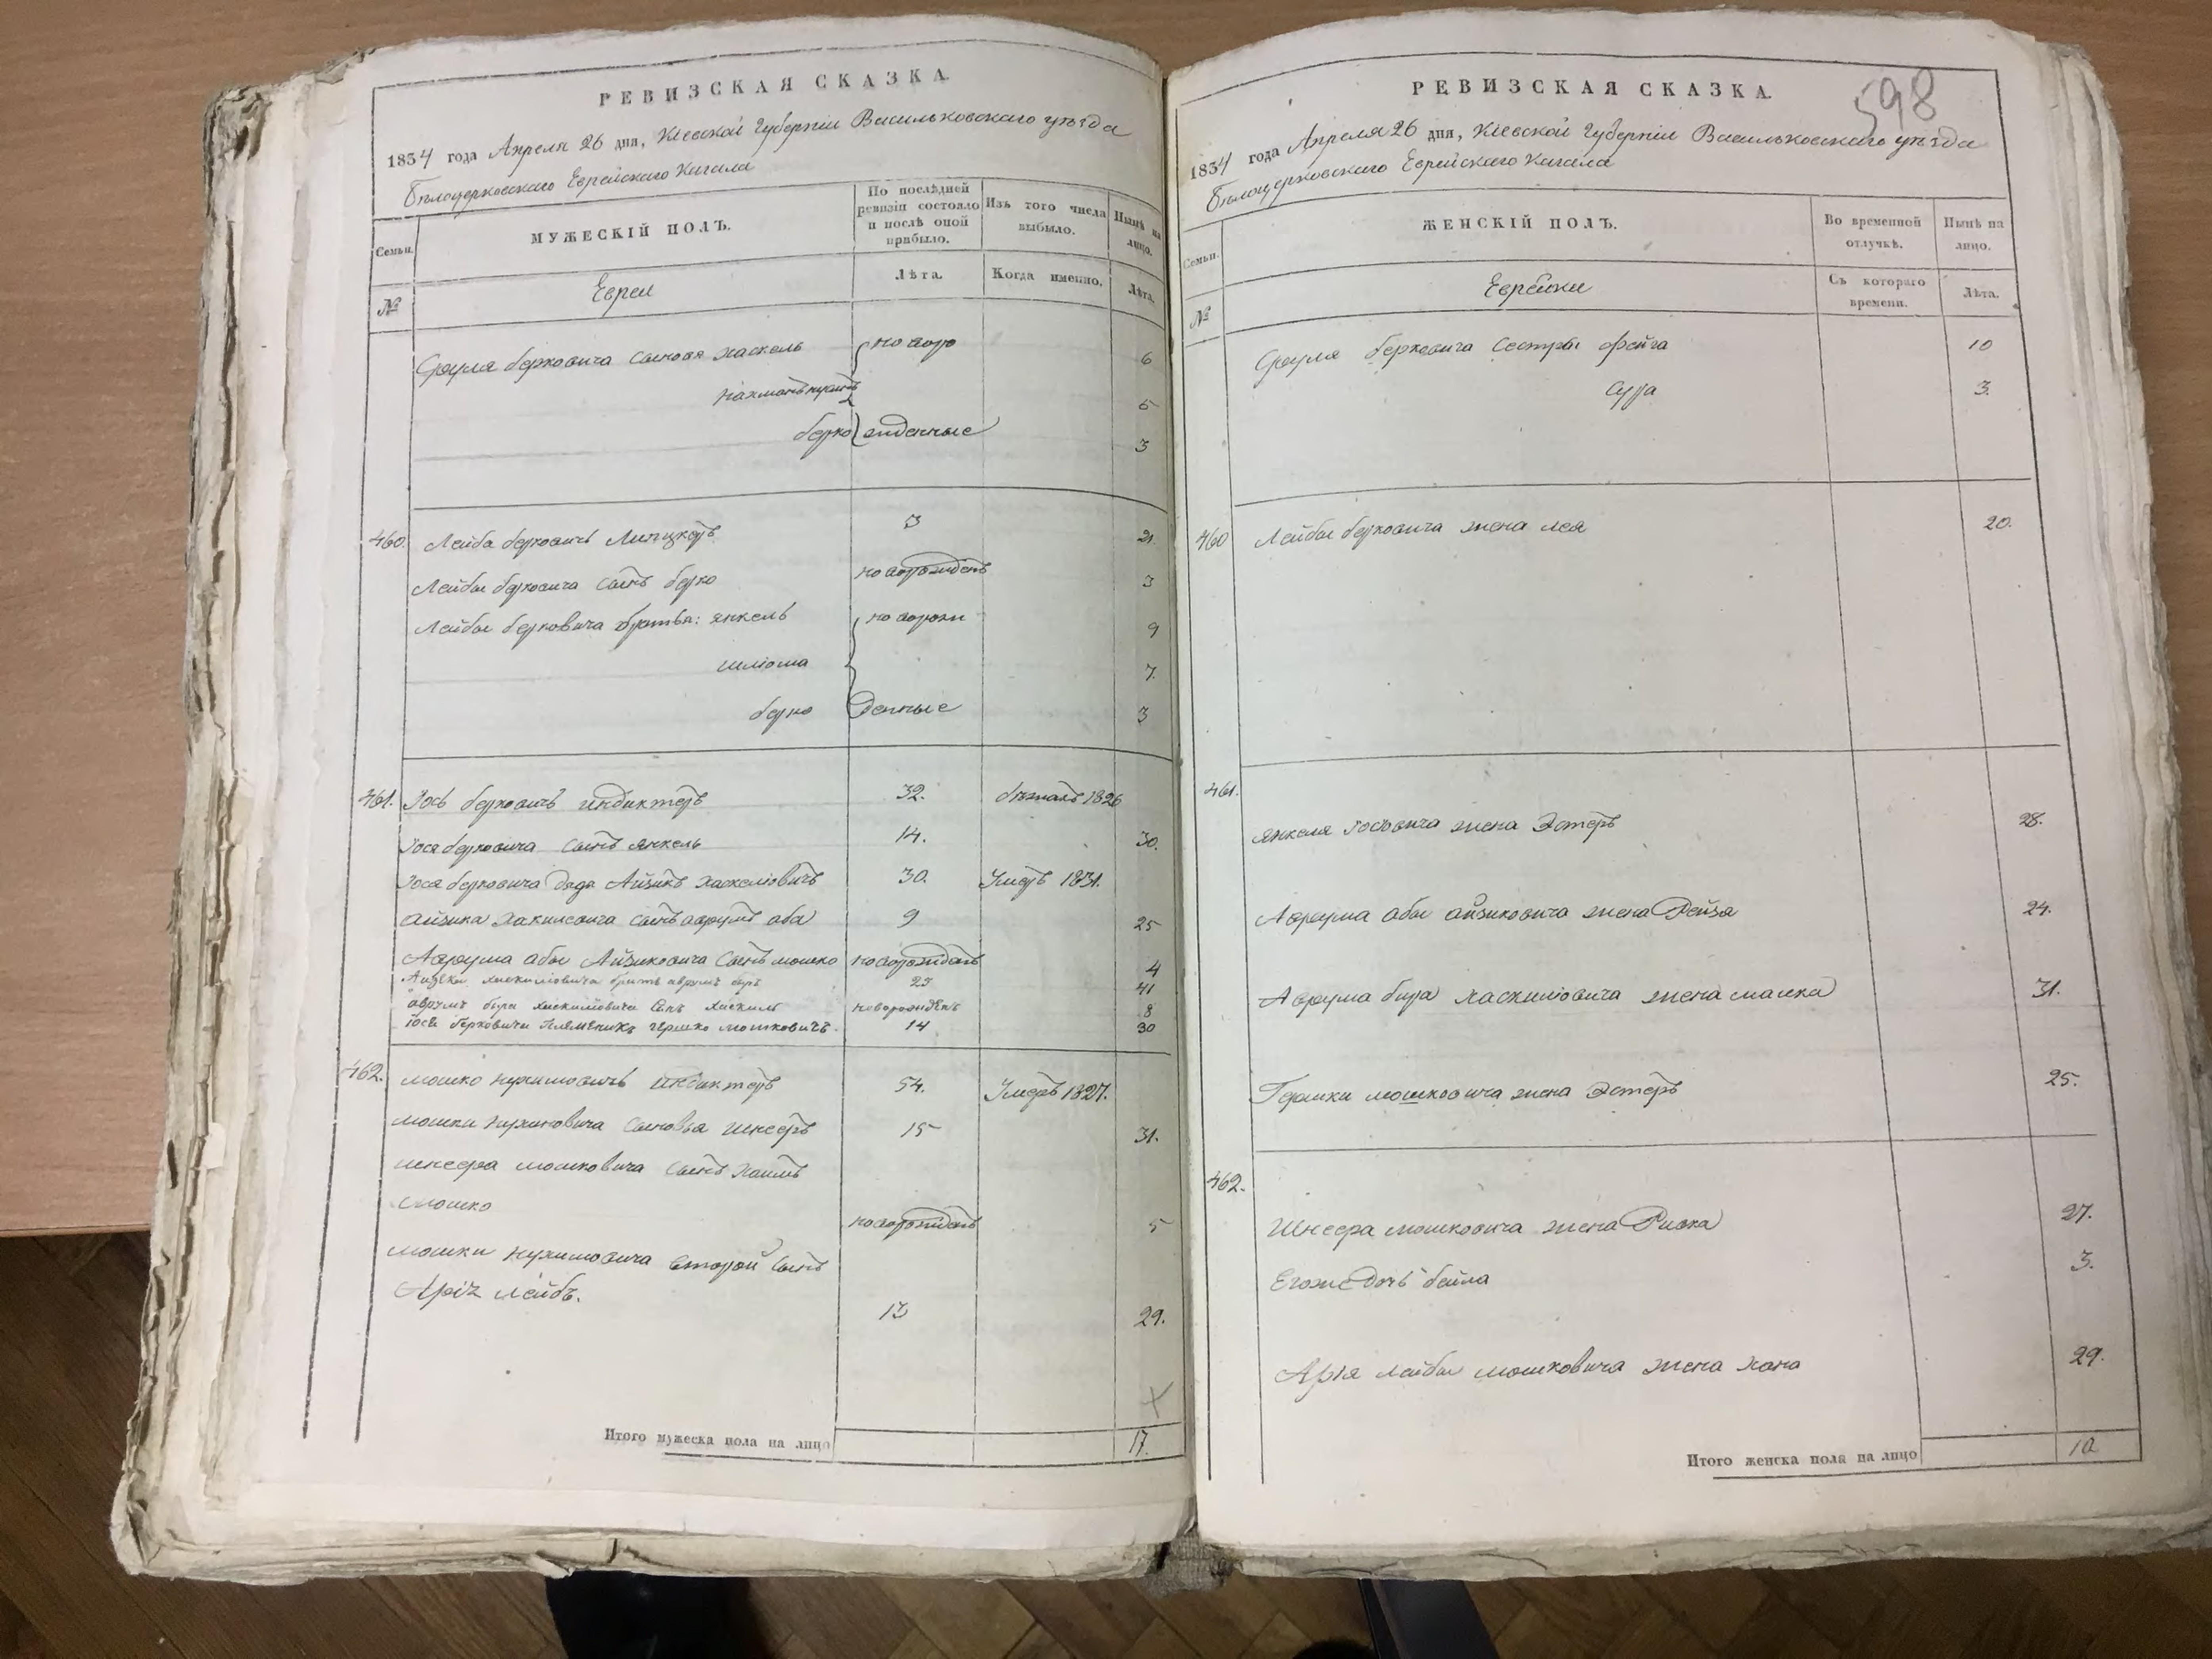 РЕВИЗСКАЯ СКАЗКА.
1834 года Апреля 26 дня, Кіевской Губерніи Васильковскаго уѣзда
Бѣлоцерковскаго Еврейскаго Кагала
Семьи.
МУЖЕСКІЙ ПОЛЪ.
По послѣдней ревизіи состояло и послѣ оной прибыло.
Изъ того числа выбыло.
Нынѣ на лицо.
№
Евреи
Лѣта.
Когда именно.
Лѣта.
Сруля берковича сыновя хаскель новоро 6
5
берко жденные 3
460. Лейба берковичь 21
Лейбы берковича сынъ берко новорожденъ 3
Лейбы берковича братья: янкель новорож 9
шліома 7.
берко денные 3
461. Іось берковичъ индиктеръ 32. бѣжалъ 1826
Іося берковича сынъ янкель 14. 30.
Іося берковича дядя Айзикъ хаскеліовичъ 30. Умеръ 1831.
айзика хакилевича сынъ аврумъ аба 9 25
Аврума абы Айзиковича сынъ мошко новорожденъ 4
Айзека хаскиліовича братъ аврумъ бер 25 41
аврумъ бера хаскиліовича сынъ хаскиль новорожденъ 8
Іося берковича племеникъ гершко мошковичъ. 14 30
462. мошко нухимовичь индиктеръ 54. Умеръ 1827.
мошки нухимовича сыновья шнееръ 15 31.
шнеера мошковича сынъ хаимъ
мошко новорожденъ 5
мошки нухимовича второй сынъ
Аріѣ лейбъ. 13 29.
Итого мужеска пола на лицо 17.
598
РЕВИЗСКАЯ СКАЗКА.
1834 года Апреля 26 дня, Кіевской Губерніи Васильковскаго уѣзда
Бѣлоцерковскаго Еврейскаго Кагала
Семьи.
ЖЕНСКІЙ ПОЛЪ.
Во временной отлучкѣ.
Нынѣ на лицо.
№
Еврейки
Съ котораго времени.
Лѣта.
Сруля берковича сестры фейга 10
сура 3.
460 Лейбы берковича жена лея 20.
461.
янкеля Іосьовича жена Эстеръ 28.
Аврума абы айзиковича жена Рейза 24.
Аврума бера хаскиліовича жена малка 31.
Гершки мошковича жена Эстеръ 25.
462.
Шнеера мошковича жена Ривка 27.
Егоже дочь бейла 3.
Арія лейбы мошковича жена хана 29.
Итого женска пола на лицо 10